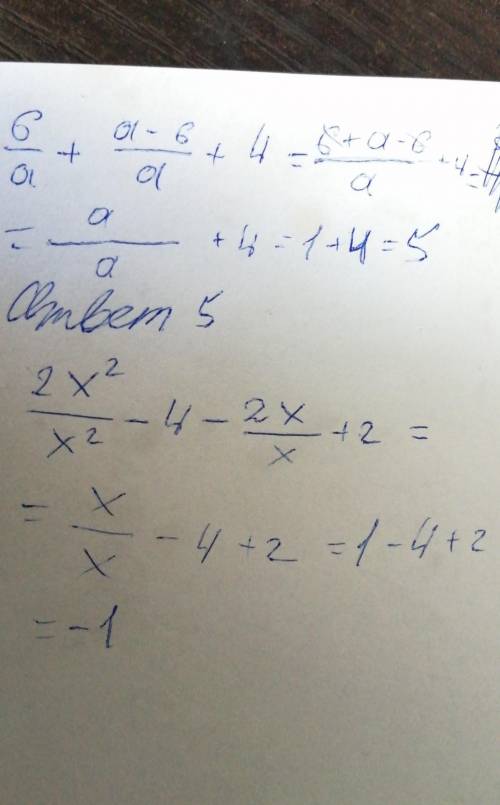 6/a + (a-6)/a + 4 = (6+a-6)/a + 4 =
= a/a + 4 = 1+4 = 5
Ответ 5
2x²/x² - 4 - 2x/x + 2 =
= x/x - 4 + 2 = 1 - 4 + 2
= -1